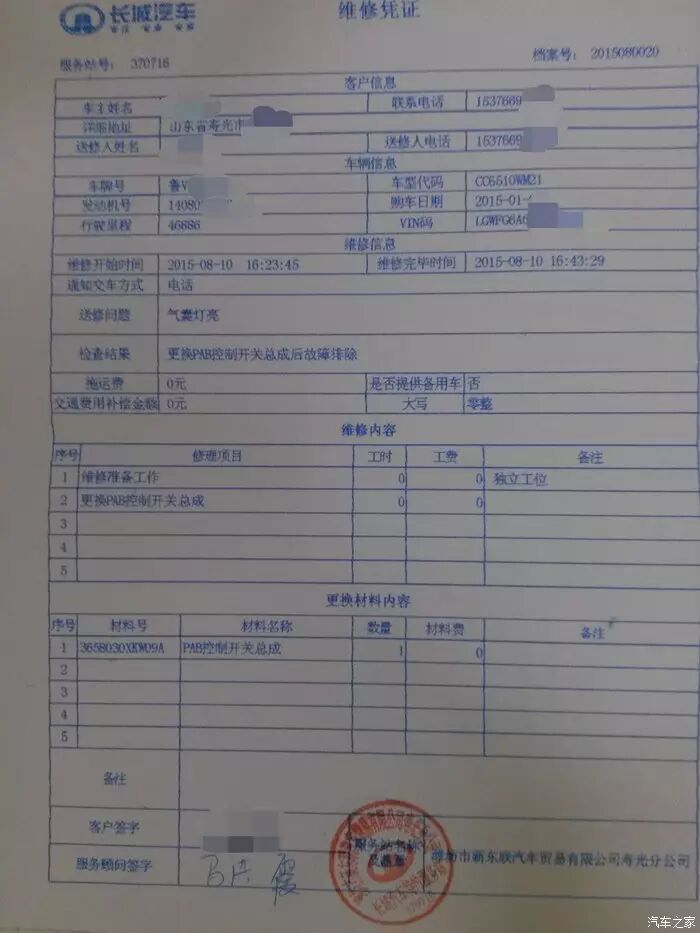 长城汽车
维修凭证
服务站号: 370716
档案号: 2015080020
客户信息
车主姓名 联系电话 1537669
详细地址 山东省寿光市
送修人姓名 送修人电话 1537669
车辆信息
车牌号 鲁V 车型代码 CC6510WM21
发动机号 14080 购车日期 2015-01-
行驶里程 46886 VIN码 LGWFG6A6
维修信息
维修开始时间 2015-08-10 16:23:45 维修完毕时间 2015-08-10 16:43:29
通知交车方式 电话
送修问题 气囊灯亮
检查结果 更换PAB控制开关总成后故障排除
拖运费 0元 是否提供备用车 否
交通费用补偿金额 0元 大写 零整
维修内容
序号 修理项目 工时 工费 备注
1 维修准备工作 0 0 独立工位
2 更换PAB控制开关总成 0 0
3
4
5
更换材料内容
序号 材料号 材料名称 数量 材料费 备注
1 3658030XKW09A PAB控制开关总成 1 0
2
3
4
5
备注
客户签字
服务站名称
潍坊市新东联汽车贸易有限公司寿光分公司
服务顾问签字 马洪霞
汽车之家